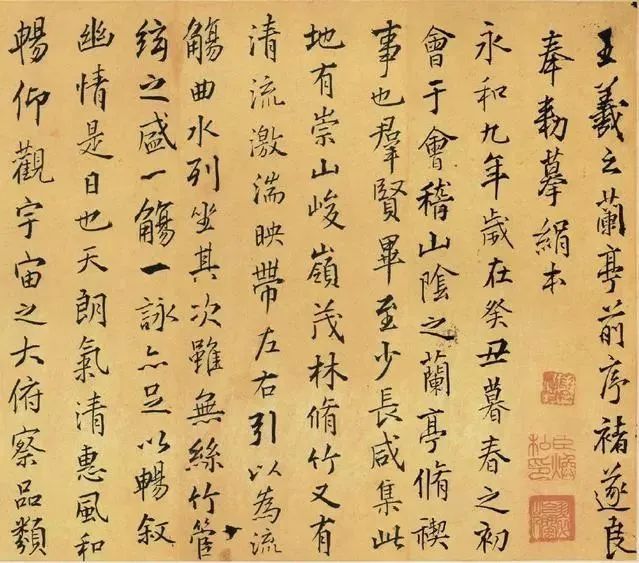 王羲之蘭亭前序褚遂良
奉勅摹絹本
永和九年歲在癸丑暮春之初
會于會稽山陰之蘭亭脩禊
事也羣賢畢至少長咸集此
地有崇山峻嶺茂林脩竹又有
清流激湍映帶左右引以為流
觴曲水列坐其次雖無絲竹管
絃之盛一觴一詠亦足以暢敘
幽情是日也天朗氣清惠風和
暢仰觀宇宙之大俯察品類